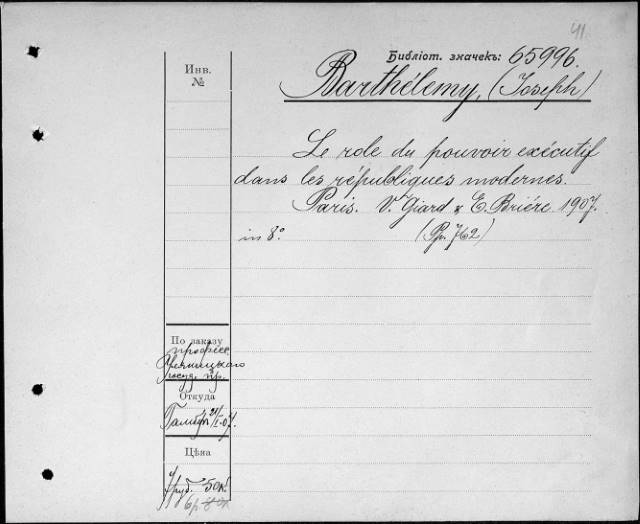 41
Библіот. значекъ: 65996.
Инв.
№
Barthélemy, (Joseph)
Le role du pouvoir exécutif
dans les républiques modernes.
Paris. V. Giard & E. Brière 1907.
in 8° (Pp. 762)
По заказу
професс.
госуд. пр.
Откуда
21/I-07.
Цѣна
руб. 50 к.
6 р.